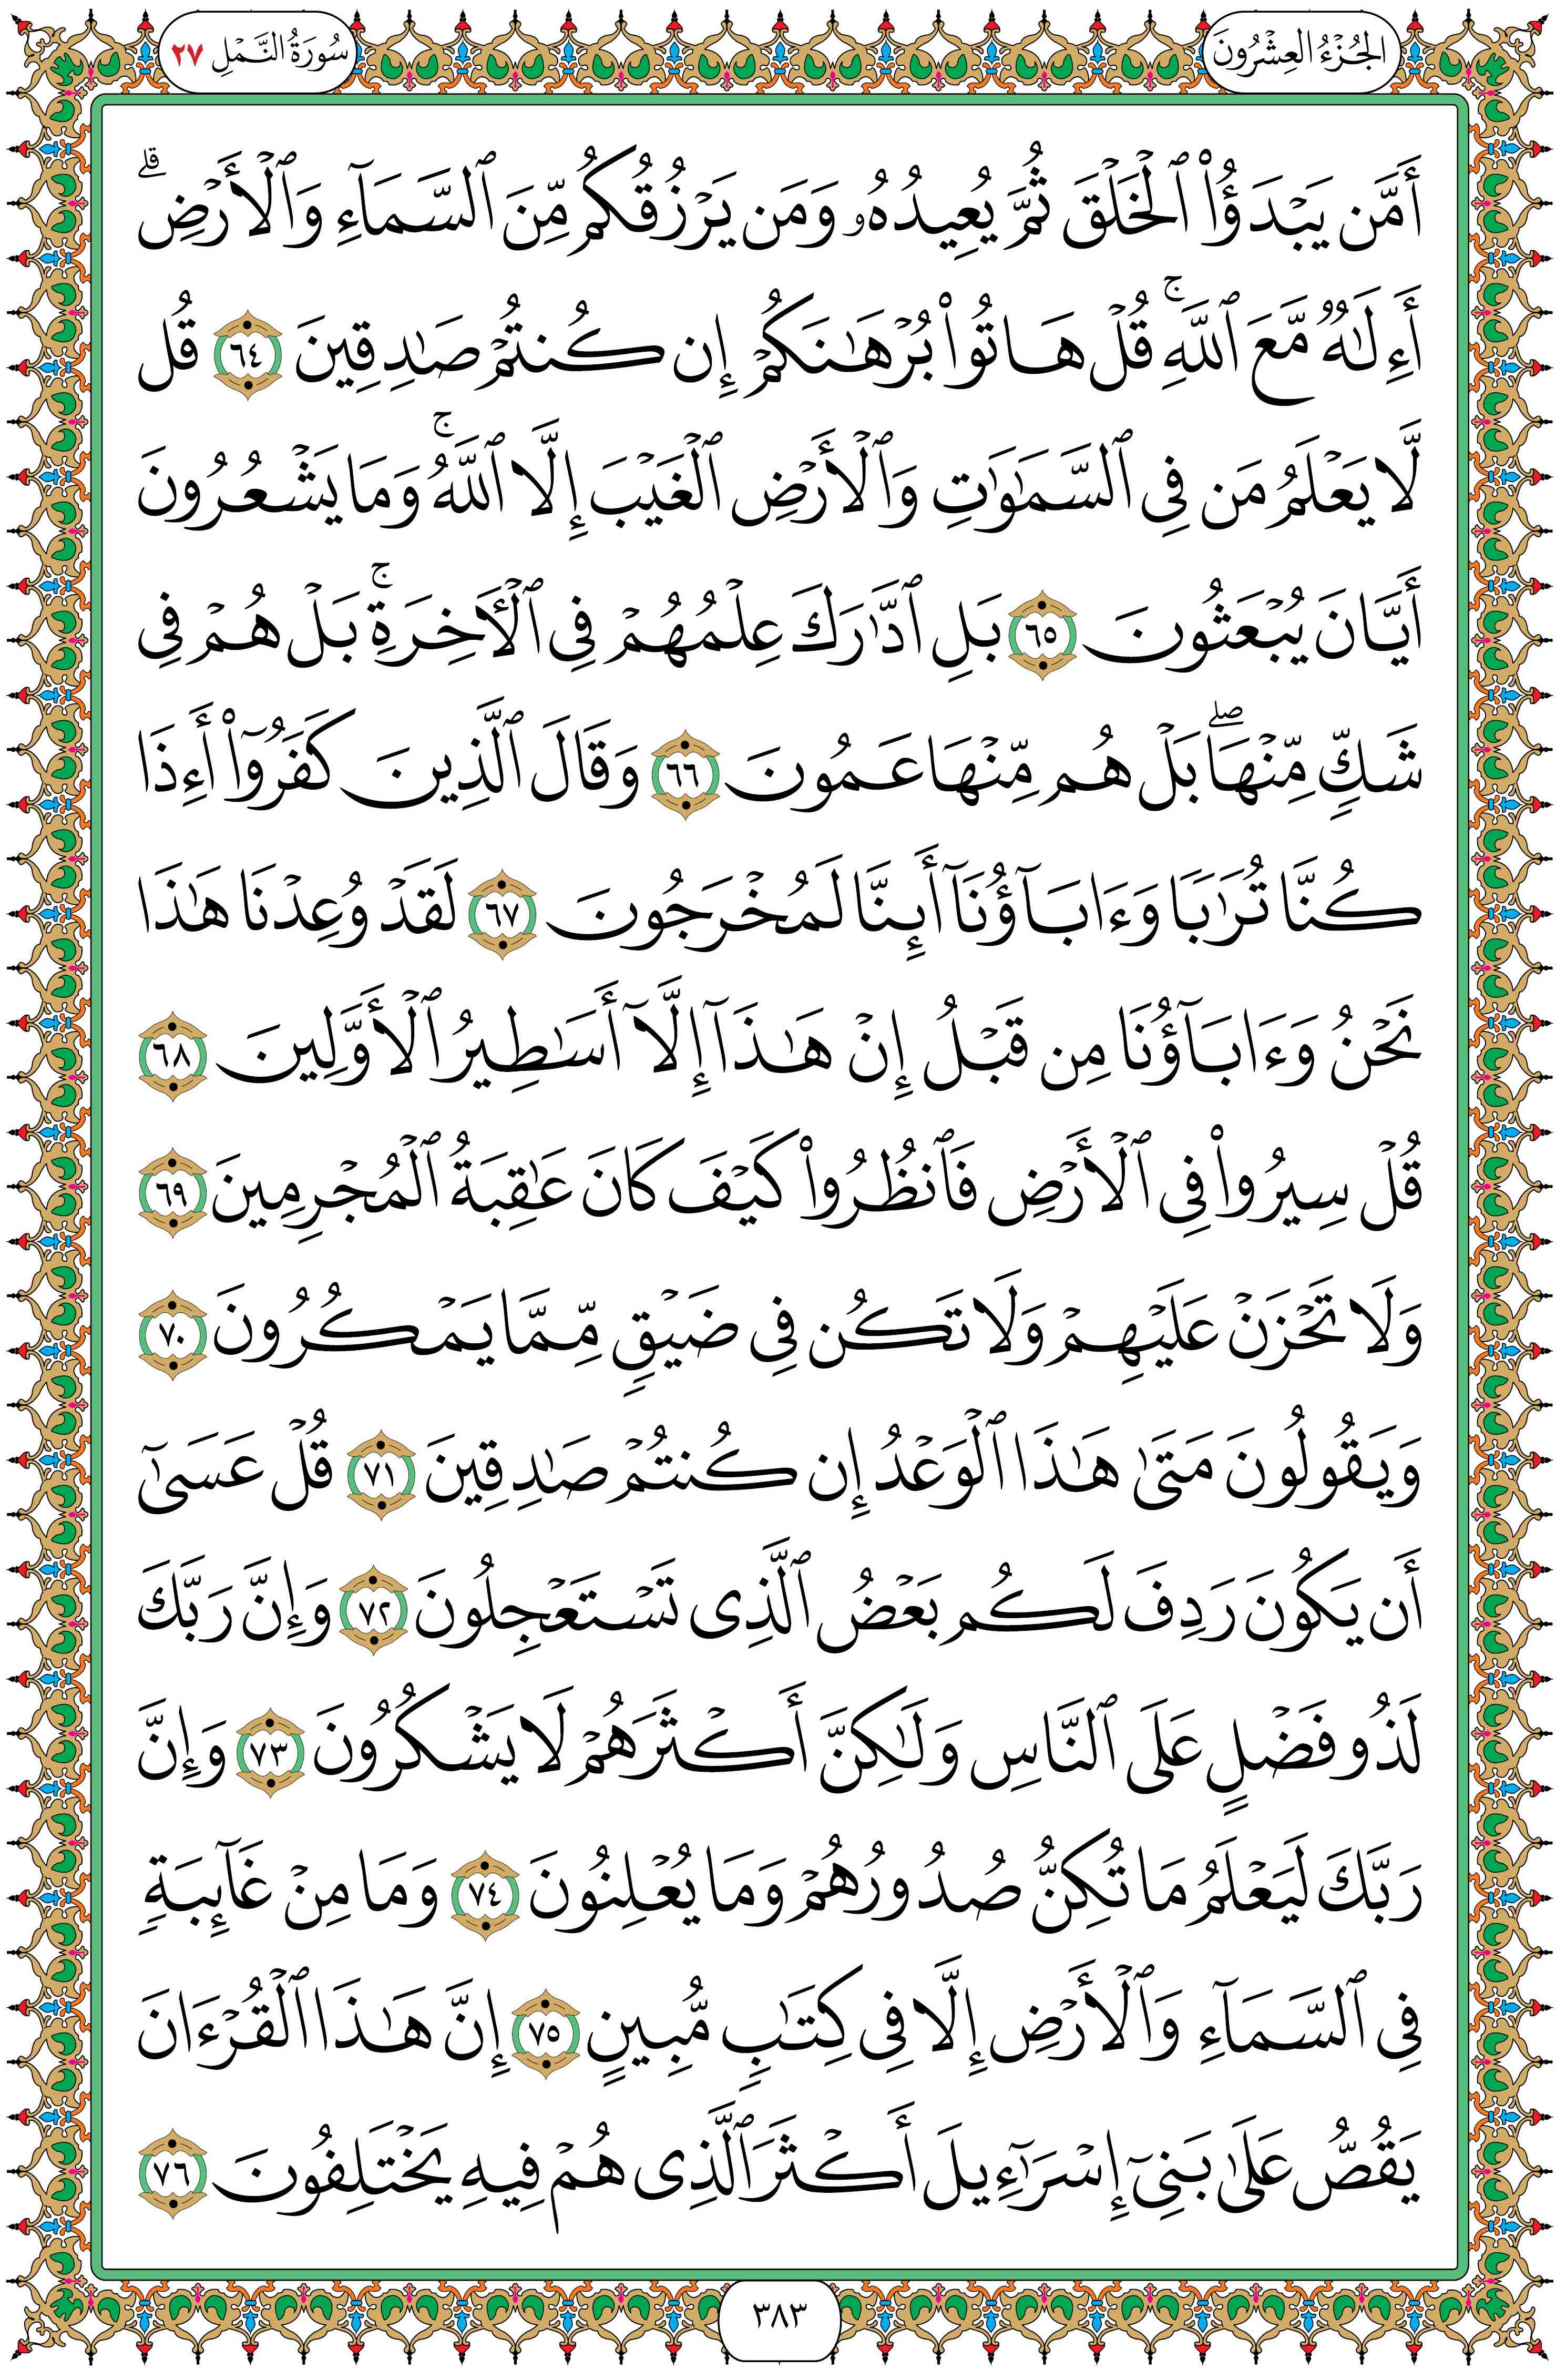 الجُزْءُ العِشْرُونَ
سُورَةُ النَّمْلِ ٢٧
أَمَّن يَبْدَؤُا۟ ٱلْخَلْقَ ثُمَّ يُعِيدُهُۥ وَمَن يَرْزُقُكُم مِّنَ ٱلسَّمَآءِ وَٱلْأَرْضِ ۗ
أَءِلَـٰهٌ مَّعَ ٱللَّهِ ۚ قُلْ هَاتُوا۟ بُرْهَـٰنَكُمْ إِن كُنتُمْ صَـٰدِقِينَ ٦٤ قُل
لَّا يَعْلَمُ مَن فِى ٱلسَّمَـٰوَٰتِ وَٱلْأَرْضِ ٱلْغَيْبَ إِلَّا ٱللَّهُ ۚ وَمَا يَشْعُرُونَ
أَيَّانَ يُبْعَثُونَ ٦٥ بَلِ ٱدَّٰرَكَ عِلْمُهُمْ فِى ٱلْـَٔاخِرَةِ ۚ بَلْ هُمْ فِى
شَكٍّ مِّنْهَا ۖ بَلْ هُم مِّنْهَا عَمُونَ ٦٦ وَقَالَ ٱلَّذِينَ كَفَرُوٓا۟ أَءِذَا
كُنَّا تُرَٰبًا وَءَابَآؤُنَآ أَئِنَّا لَمُخْرَجُونَ ٦٧ لَقَدْ وُعِدْنَا هَـٰذَا
نَحْنُ وَءَابَآؤُنَا مِن قَبْلُ إِنْ هَـٰذَآ إِلَّآ أَسَـٰطِيرُ ٱلْأَوَّلِينَ ٦٨
قُلْ سِيرُوا۟ فِى ٱلْأَرْضِ فَٱنظُرُوا۟ كَيْفَ كَانَ عَـٰقِبَةُ ٱلْمُجْرِمِينَ ٦٩
وَلَا تَحْزَنْ عَلَيْهِمْ وَلَا تَكُن فِى ضَيْقٍ مِّمَّا يَمْكُرُونَ ٧٠
وَيَقُولُونَ مَتَىٰ هَـٰذَا ٱلْوَعْدُ إِن كُنتُمْ صَـٰدِقِينَ ٧١ قُلْ عَسَىٰٓ
أَن يَكُونَ رَدِفَ لَكُم بَعْضُ ٱلَّذِى تَسْتَعْجِلُونَ ٧٢ وَإِنَّ رَبَّكَ
لَذُو فَضْلٍ عَلَى ٱلنَّاسِ وَلَـٰكِنَّ أَكْثَرَهُمْ لَا يَشْكُرُونَ ٧٣ وَإِنَّ
رَبَّكَ لَيَعْلَمُ مَا تُكِنُّ صُدُورُهُمْ وَمَا يُعْلِنُونَ ٧٤ وَمَا مِنْ غَآئِبَةٍ
فِى ٱلسَّمَآءِ وَٱلْأَرْضِ إِلَّا فِى كِتَـٰبٍ مُّبِينٍ ٧٥ إِنَّ هَـٰذَا ٱلْقُرْءَانَ
يَقُصُّ عَلَىٰ بَنِىٓ إِسْرَٰٓءِيلَ أَكْثَرَ ٱلَّذِى هُمْ فِيهِ يَخْتَلِفُونَ ٧٦
٣٨٣